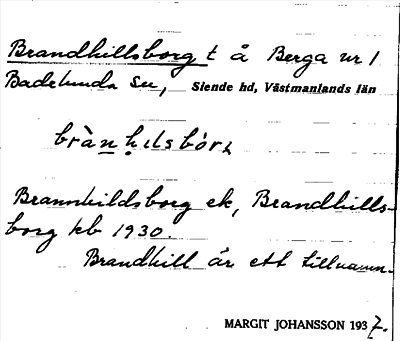 Brandhillsborg t å Berga nr 1
Badelunda sn, Siende hd, Västmanlands län
Brannhildsborg ek, Brandhills-
borg kb 1930.
Brandhill är ett tillnamn.
MARGIT JOHANSSON 1937.